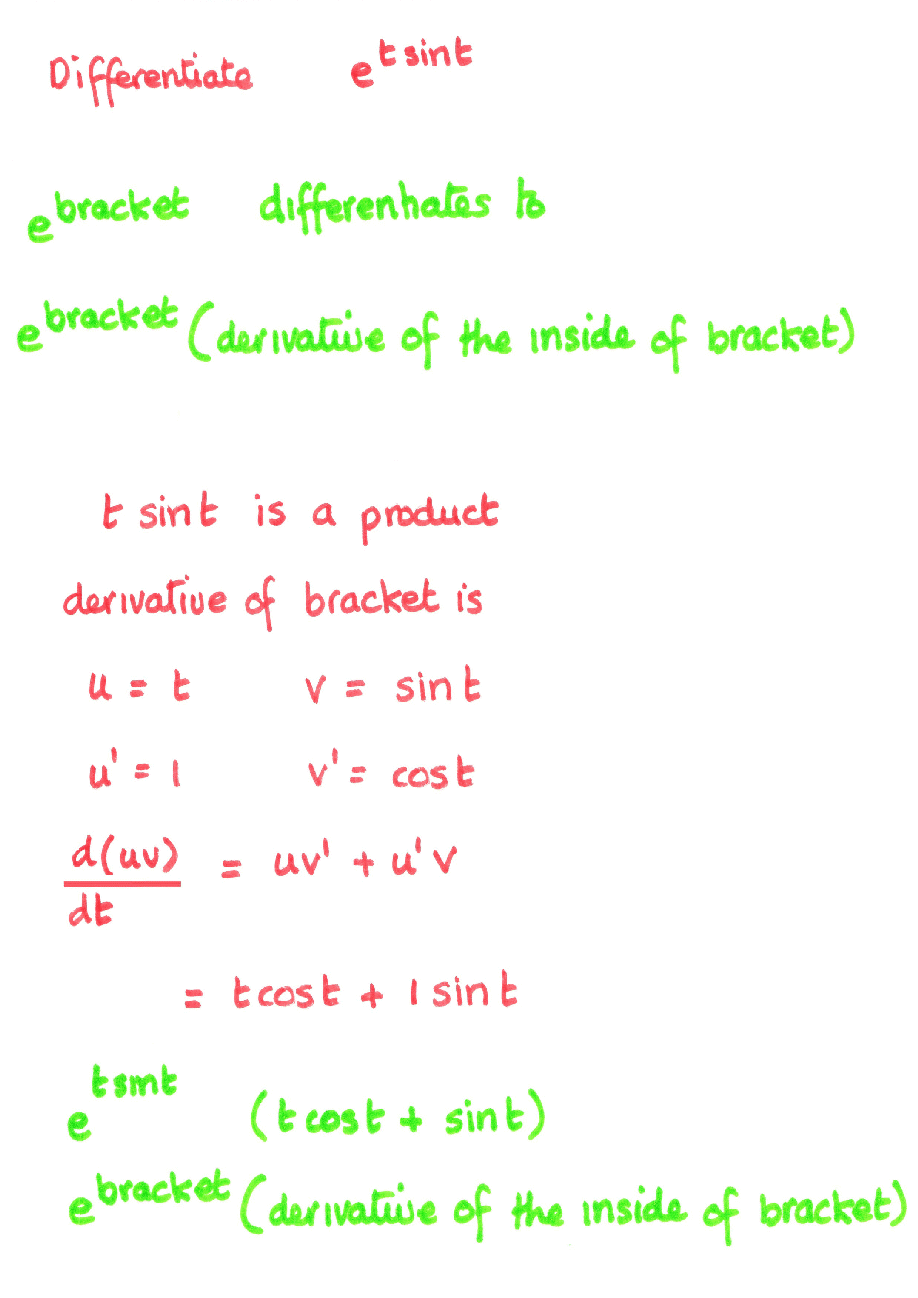 Differentiate e^{t sint}
e^{bracket} differentiates to
e^{bracket} (derivative of the inside of bracket)
t sint is a product
derivative of bracket is
u = t v = sint
u' = 1 v' = cost
d(uv)/dt = uv' + u'v
= tcost + 1 sint
e^{t sint} (tcost + sint)
e^{bracket} (derivative of the inside of bracket)